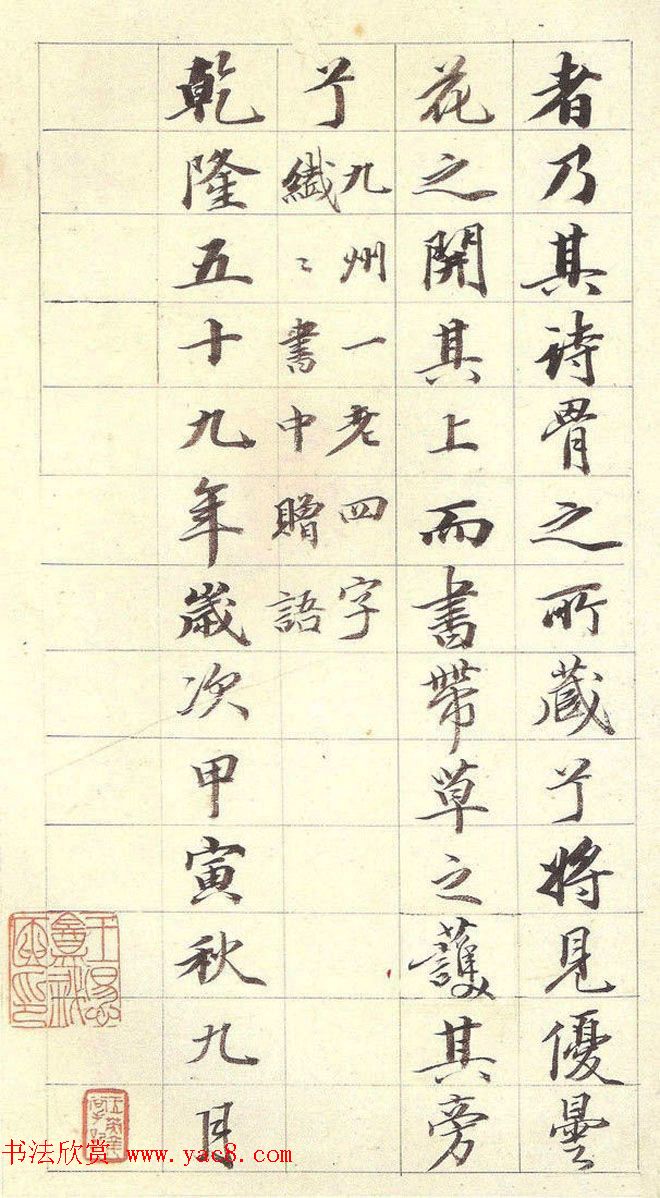 者乃其詩骨之所藏兮將見優曇
花之開其上而書帶草之護其旁
兮
九州一老四字
纖〻書中贈語
乾隆五十九年歲次甲寅秋九月
书法欣赏 www.yac8.com